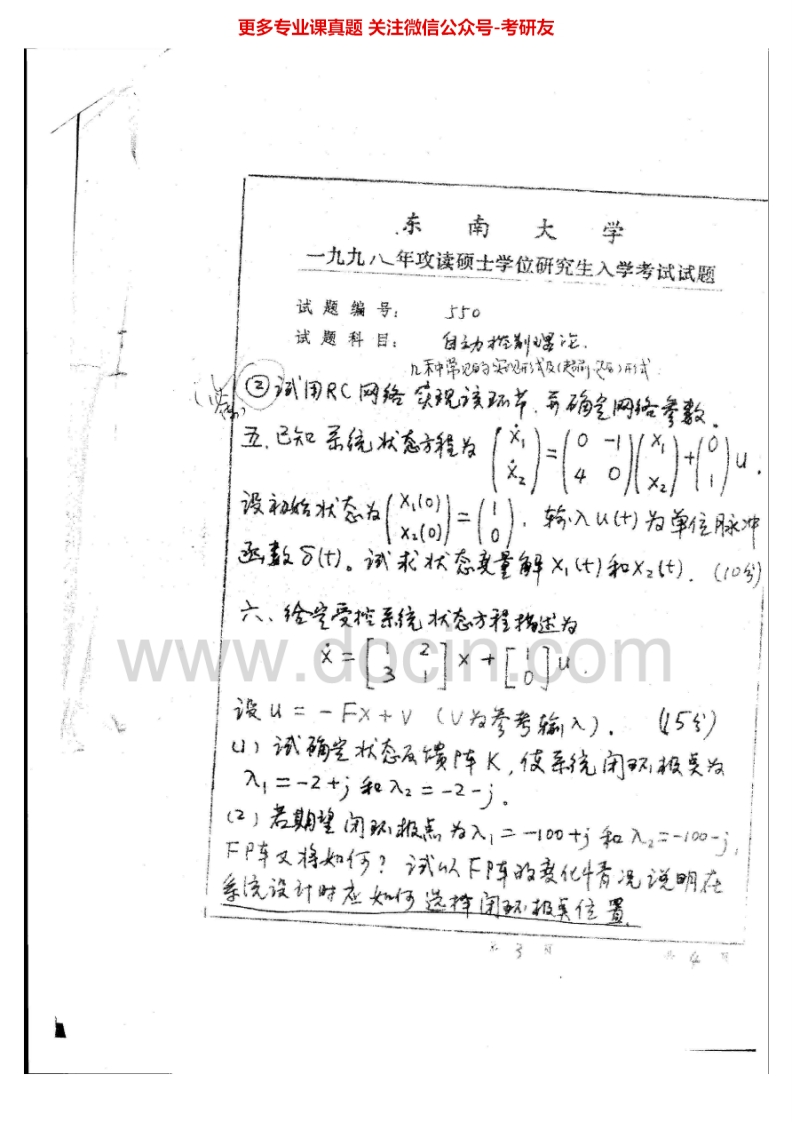 更多专业课真题 关注微信公众号-考研友
东 南 大 学
一九九八年攻读硕士学位研究生入学考试试题
试 题 编 号： 550
试 题 科 目： 自动控制理论.
几种常见的实现形式及(超前、迟后)形式
② 试用RC网络实现该环节，并确定网络参数。
五. 已知系统状态方程为 (ẋ₁ ẋ₂) = (0 -1 4 0)(x₁ x₂) + (0 1) u .
设初始状态为 (x₁(0) x₂(0)) = (1 0) . 输入u(t)为单位脉冲
函数δ(t)。试求状态变量解 x₁(t) 和 x₂(t). (10分)
六、给定受控系统状态方程描述为
ẋ = [1 2 3 1] x + [1 0] u .
www.docin.com
设 u = -Fx+v (v为参考输入). (15分)
(1) 试确定状态反馈阵 K, 使系统闭环极点为
λ₁ = -2+j 和 λ₂ = -2-j 。
(2) 若期望闭环极点为 λ₁ = -100+j 和 λ₂ = -100-j,
F阵又将如何？试以F阵的变化情况说明在
系统设计时应如何选择闭环极点位置.
第 3 页 共 4 页